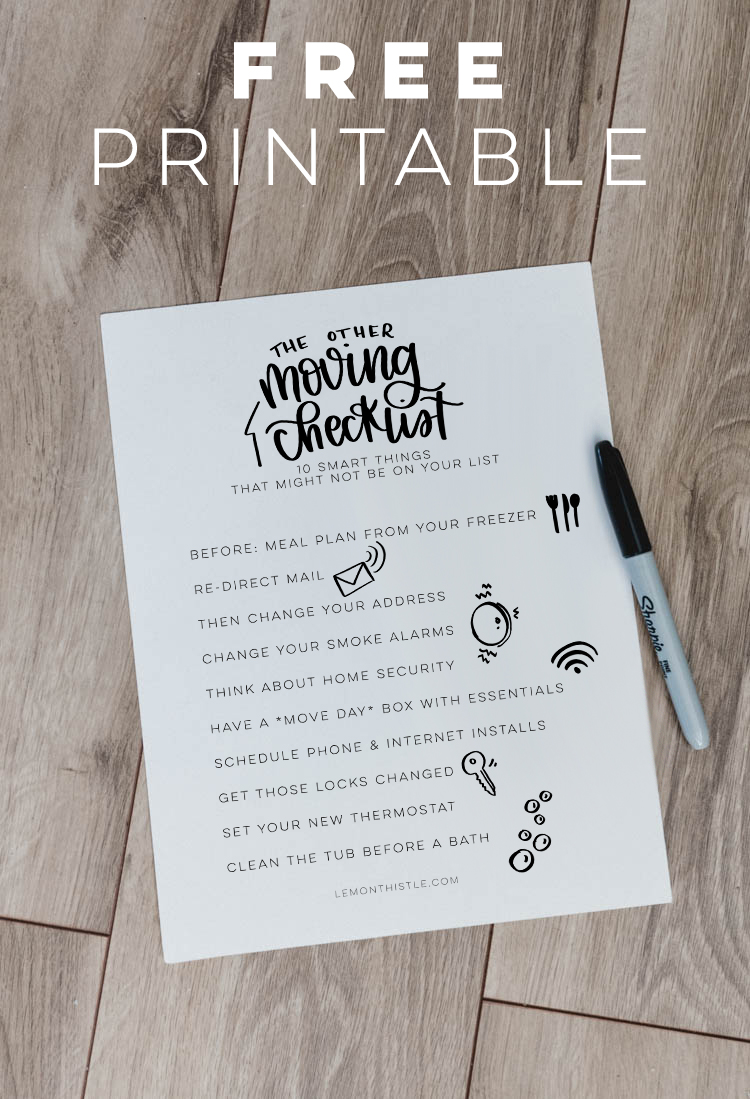 FREE
PRINTABLE
THE OTHER
moving
checklist
10 SMART THINGS
THAT MIGHT NOT BE ON YOUR LIST
BEFORE: MEAL PLAN FROM YOUR FREEZER
RE-DIRECT MAIL
THEN CHANGE YOUR ADDRESS
CHANGE YOUR SMOKE ALARMS
THINK ABOUT HOME SECURITY
HAVE A *MOVE DAY* BOX WITH ESSENTIALS
SCHEDULE PHONE & INTERNET INSTALLS
GET THOSE LOCKS CHANGED
SET YOUR NEW THERMOSTAT
CLEAN THE TUB BEFORE A BATH
LEMONTHISTLE.COM
Sharpie